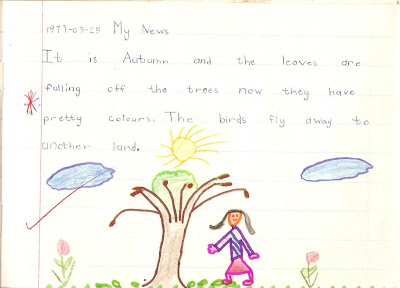 1977-03-25 My News
It is Autumn and the leaves are
falling off the trees now they have
pretty colours. The birds fly away to
another land.